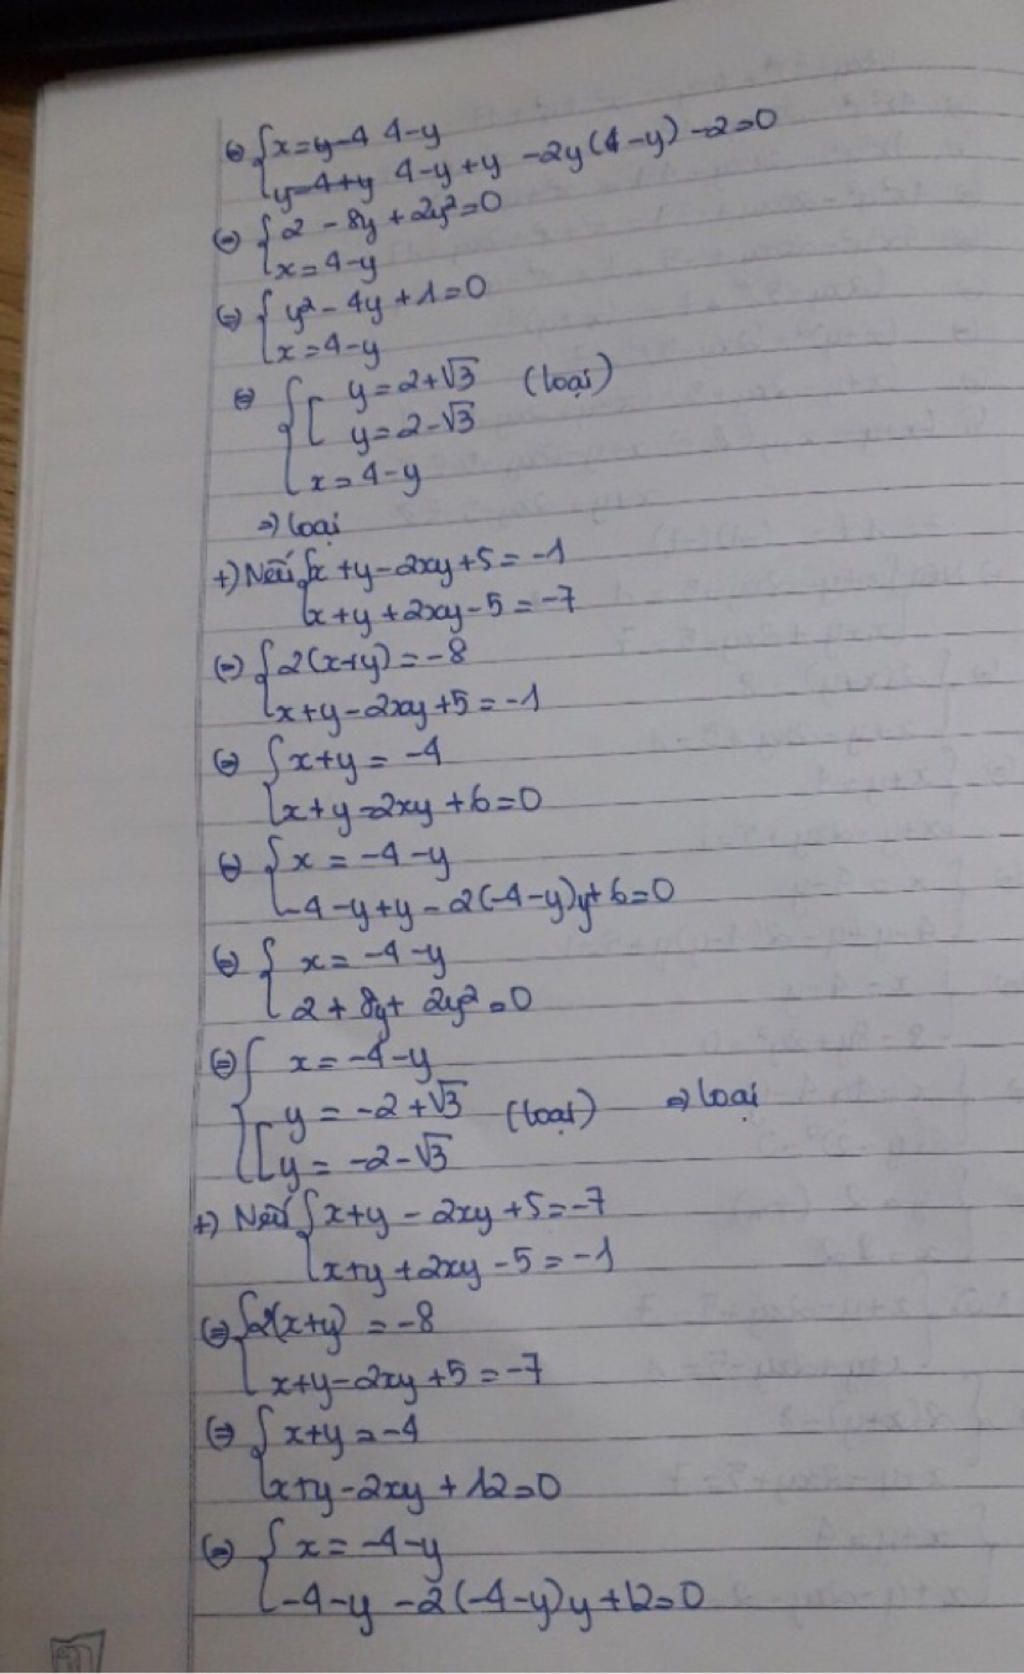 ⇔ { x = y-4 4-y
y-4+y 4-y+y -2y(4-y) -2=0
⇔ { 2 - 8y + 2y² = 0
x = 4-y
⇔ { y² - 4y + 1 = 0
x = 4-y
⇔ { [ y = 2+√3 (loại)
y = 2-√3
x = 4-y
⇒ loại
+) Nếu { x + y - 2xy + 5 = -1
x + y + 2xy - 5 = -7
⇔ { 2(x+y) = -8
x+y-2xy+5 = -1
⇔ { x+y = -4
x+y-2xy+6=0
⇔ { x = -4-y
-4-y+y-2(-4-y)y+6=0
⇔ { x = -4-y
2 + 8y + 2y² = 0
⇔ { x = -4-y
[ y = -2+√3 (loại) ⇒ loại
y = -2-√3
+) Nếu { x+y - 2xy +5 = -7
x+y +2xy -5 = -1
⇔ { 2(x+y) = -8
x+y-2xy+5 = -7
⇔ { x+y = -4
x+y-2xy+12=0
⇔ { x = -4-y
-4-y -2(-4-y)y+12=0